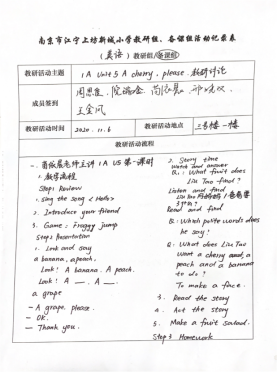 南京市江宁上坊新城小学教研组、备课组活动记录表
(英语)教研组/备课组
教研活动主题
1A Unit 5 A cherry, please. 教研讨论
成员签到
教研活动时间
2020.11.6
教研活动地点
三号楼一楼
教研活动流程
老师主讲 1A U5 第一课时
1. 教学流程
Step1 Review
1. Sing the song <Hello>
2. Introduce your friend
3. Game: Froggy jump
Step2 Presentation
1. Look and say
a banana, a peach.
Look! A banana. A peach.
Look! A __. A __.
a grape
- A grape, please.
- OK.
- Thank you.
2. Story time
Watch and answer
Q1: What fruit does
Liu Tao find?
Listen and find
Read and find
Q: Which polite words does
he say?
Q: What does Liu Tao
want a cherry and a
peach and a banana
to do?
To make a face.
3. Read the story
4. Act the story
5. Make a fruit salad.
Step 3 Homework